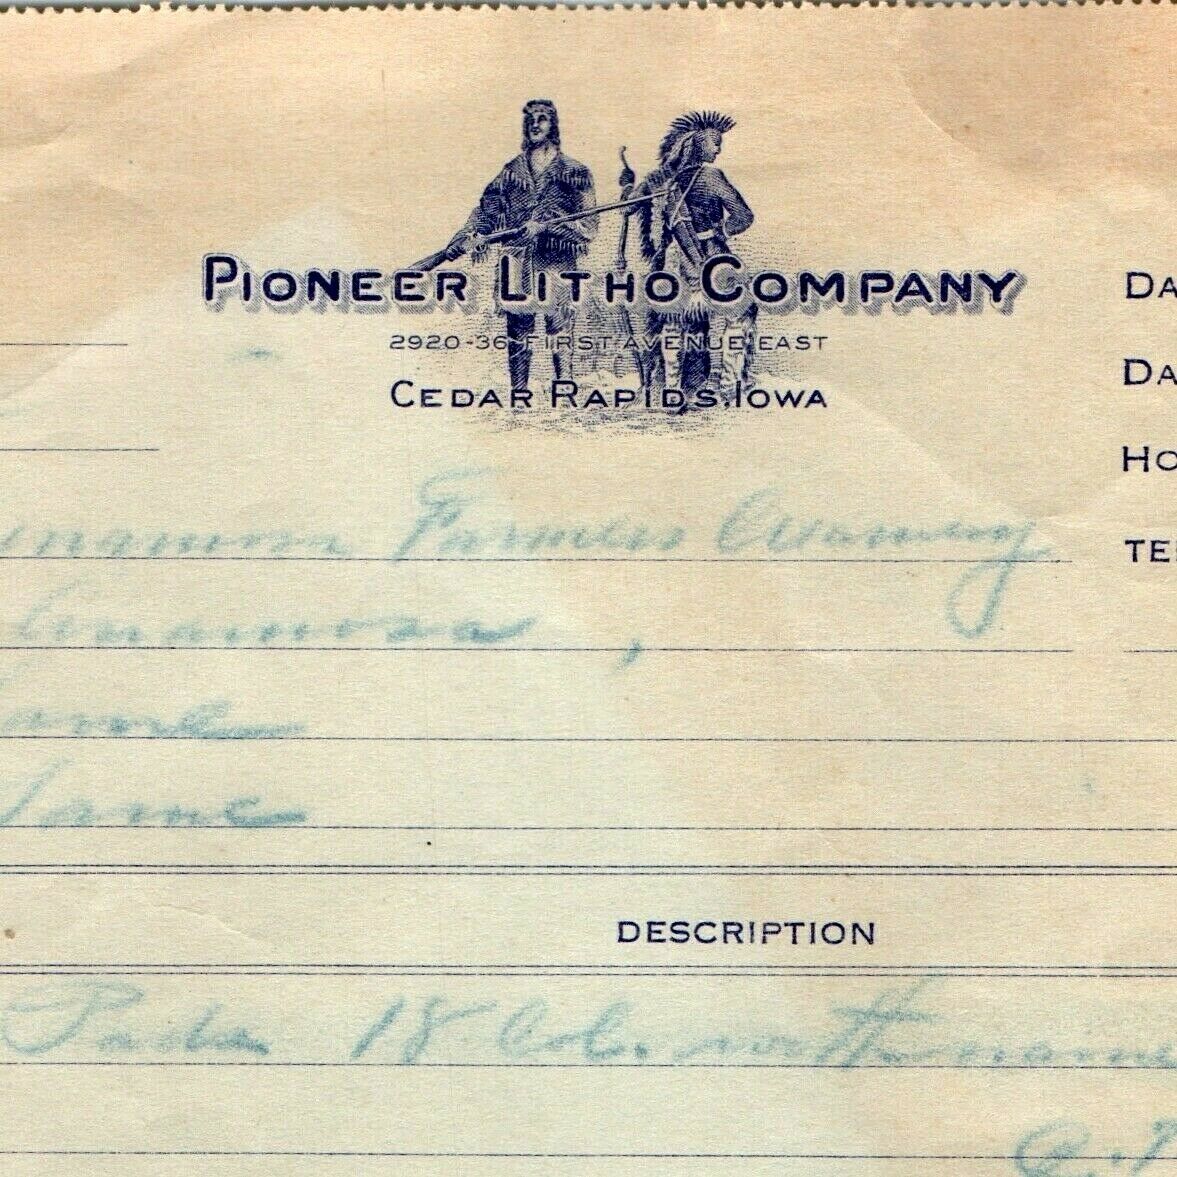 PIONEER LITHO COMPANY
2920-36 FIRST AVENUE EAST
CEDAR RAPIDS, IOWA
DA
DA
HO
TE
Farmers Creamery
Anamosa,
Same
Same
DESCRIPTION
Pads 18 Col. with name